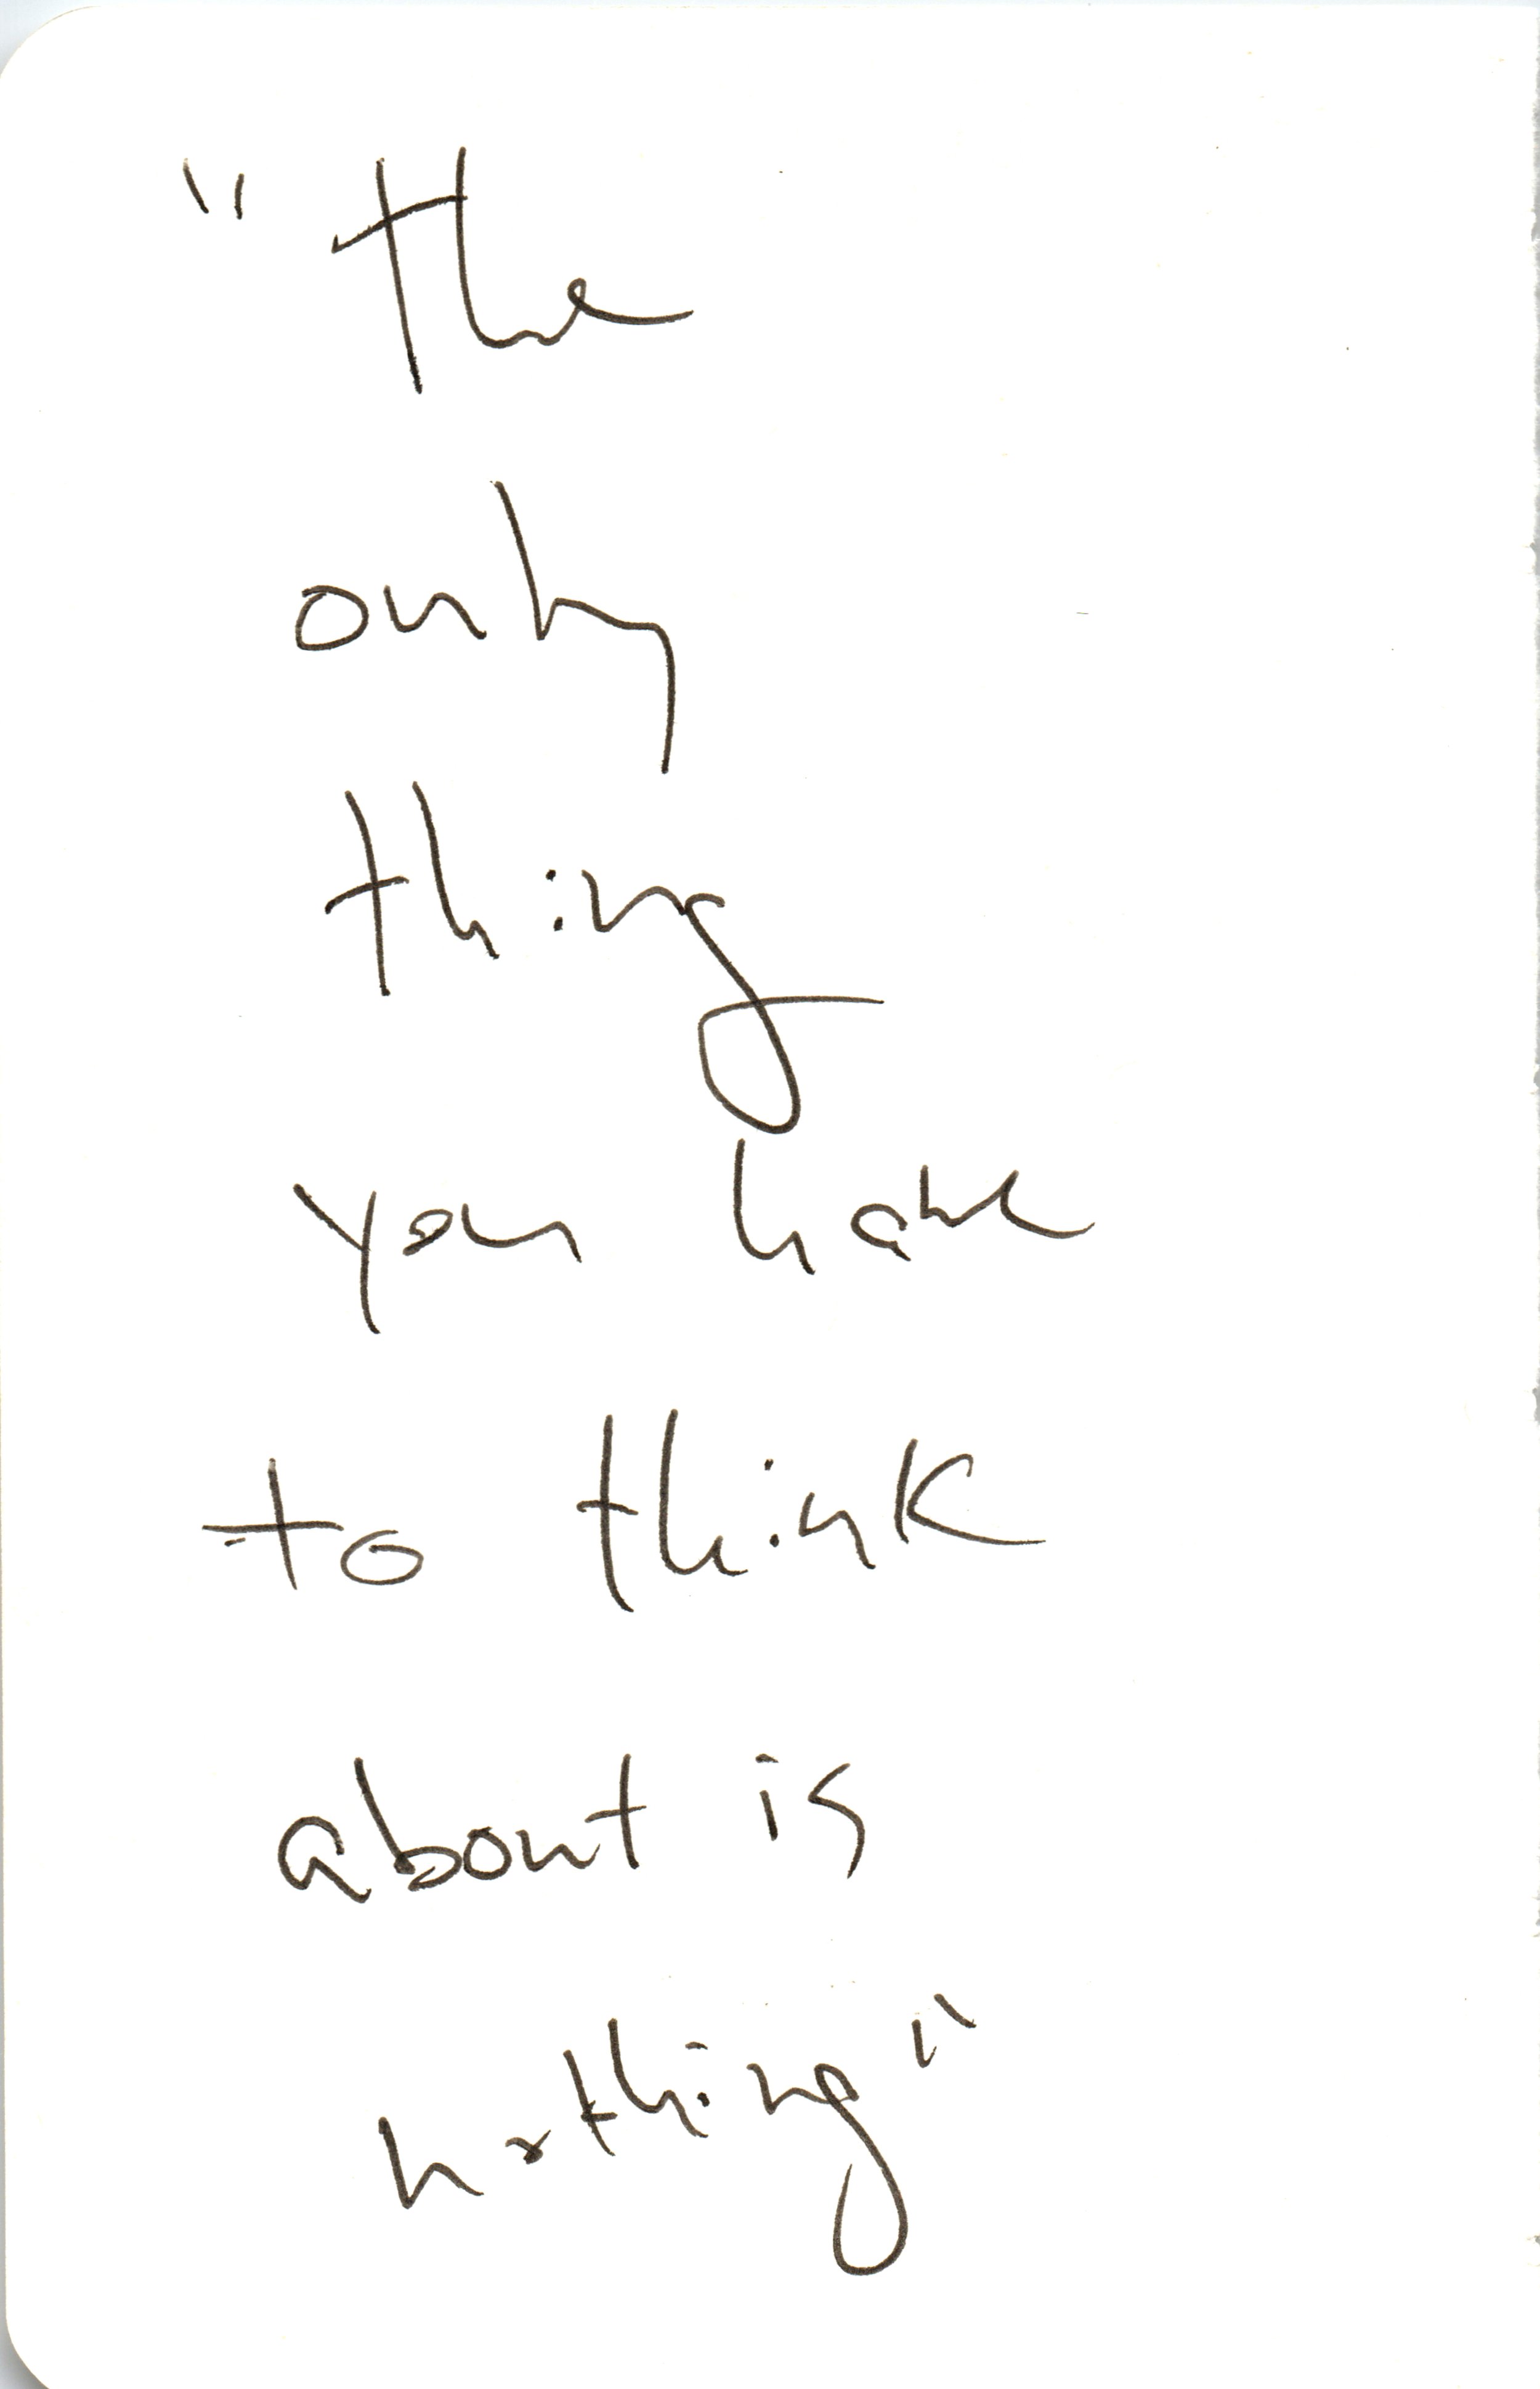 "the
only
thing
you have
to think
about is
nothing"